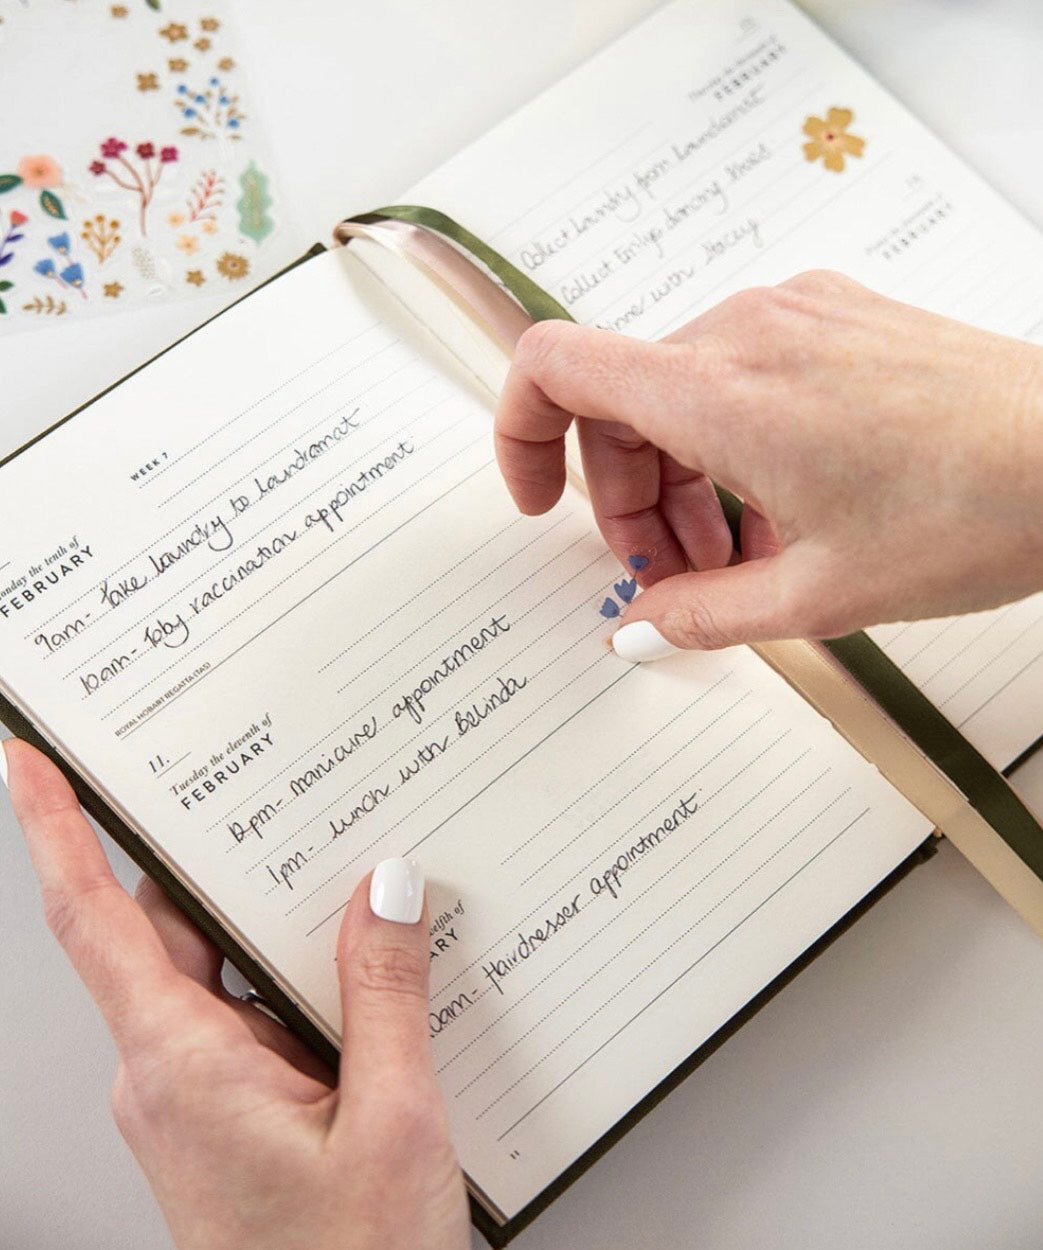 WEEK 7
Monday the tenth of
FEBRUARY
9am- Take laundry to laundramat
10am- Toby vaccination appointment
ROYAL HOBART REGATTA (TAS)
11.
Tuesday the eleventh of
FEBRUARY
12pm- manicure appointment
1pm- lunch with Belinda
of
ARY
0am- Hairdresser appointment
11
Thursday the thirteenth of
FEBRUARY
Collect laundry from laundramat
Collect dancing
with Stacey
FEBRUARY